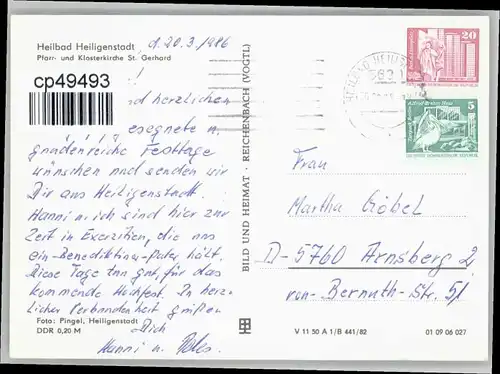 Heilbad Heiligenstadt, d. 20.3/1986
Pfarr- und Klosterkirche St. Gerhard
!
cp49493
und herzlichen
gesegnete u.
gnadenreiche Festtage
wünschen und senden wir
Dir aus Heiligenstadt.
Hanni u. ich sind hier zur
Zeit in Exerzitien, die uns
ein Benediktiner-Pater hält.
Diese Tage tun gut, für das
kommende Hochfest. In herz-
licher Verbundenheit grüßen
Dich
Hanni u.
Foto: Pingel, Heiligenstadt
DDR 0,20 M
BILD UND HEIMAT · REICHENBACH (VOGTL)
V 11 50 A 1/B 441/82
01 09 06 027
20
5
Frau
Martha Göbel
D-5760 Arnsberg 2
von-Bernuth-Str. 51